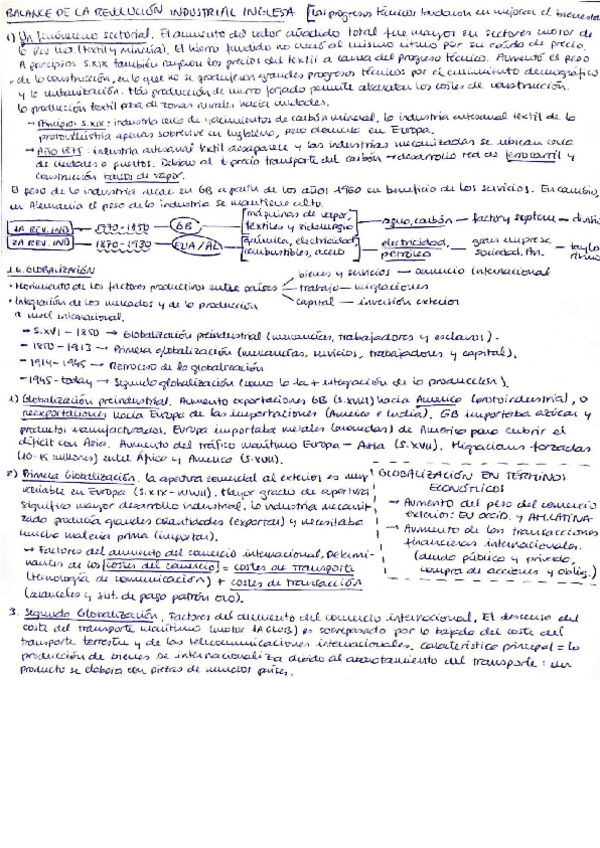 BALANCE DE LA REVOLUCIÓN INDUSTRIAL INGLESA [Los progresos técnicos tardaron en mejorar el bienestar
1) Un fenómeno sectorial. El aumento del valor añadido total fue mayor en sectores motor de
la Rev Ind (textil y minería). El hierro fundido no creció al mismo ritmo por su caída de precio.
A principios S.XIX también cayeron los precios del textil a causa del progreso técnico. Aumentó el peso
de la construcción, en lo que no se produjeron grandes progresos técnicos por el crecimiento demográfico
y la urbanización. Más producción de hierro forjado permite abaratar los costes de construcción.
La producción textil pasa de zonas rurales hacia ciudades.
→ Principio S.XIX: industria cerca de yacimientos de carbón mineral. La industria artesanal textil de la
protoindustria apenas sobrevive en Inglaterra, pero aumenta en Europa.
→ Año 1875: industria artesanal textil desaparece y las industrias mecanizadas se ubican cerca
de ciudades o puertos. Debido al ↑ precio transporte del carbón → desarrollo red de ferrocarril y
construcción barcos de vapor.
El peso de la industria recae en GB a partir de los años 1960 en beneficio de los servicios. En cambio,
en Alemania el peso de la industria se mantiene alto.
1A REV. IND → 1770-1850 GB [máquinas de vapor, textiles y siderurgia] agua, carbón - factory system -
2A REV. IND → 1870-1930 EUA/AL [química, electricidad, combustibles, acero] electricidad, petróleo - gran empresa Sociedad An. -
1.4. GLOBALIZACIÓN
• Movimiento de los factores productivos entre países
bienes y servicios — comercio internacional
trabajo — migraciones
capital — inversión exterior
• Integración de los mercados y de la producción
a nivel internacional.
→ S.XVI - 1850 → Globalización preindustrial (mercancías, trabajadores y esclavos).
- 1850 - 1913 → Primera globalización (mercancías, servicios, trabajadores y capital).
- 1914 - 1945 → Retroceso de la globalización
- 1945 - today → Segunda globalización (como la + integración de la producción).
1) Globalización preindustrial. Aumento exportaciones GB (S.XVIII) hacia América (protoindustrial), o
reexportaciones hacia Europa de las importaciones (América e India). GB importaba azúcar y
productos manufacturados. Europa importaba metales (monedas) de América para cubrir el
déficit con Asia. Aumento del tráfico marítimo Europa - Asia (S.XVII). Migraciones forzadas
(10-15 millones) entre África y América (S.XVIII).
2) Primera Globalización. La apertura comercial al exterior es muy
variable en Europa (S.XIX - WWII). Mayor grado de apertura
significa mayor desarrollo industrial. La industria mecani-
zada producía grandes cantidades (exportar) y necesitaba
mucha materia prima (importar).
→ Factores del aumento del comercio internacional. Determi-
nantes de los [costes del comercio] = costes de transporte
(tecnología de comunicación) + costes de transacción
(aranceles y sist. de pago patrón oro).
GLOBALIZACIÓN EN TÉRMINOS
ECONÓMICOS
→ Aumento del peso del comercio
exterior: EU OCCID. Y AM. LATINA
→ Aumento de las transacciones
financieras internacionales.
(deuda pública y privada,
compra de acciones y oblig.)
3. Segunda Globalización. Factores del aumento del comercio internacional. El descenso del
coste del transporte marítimo es sobrepasado por la bajada del coste del
transporte terrestre y de las telecomunicaciones internacionales. Característica principal = la
producción de bienes se internacionaliza debido al abaratamiento del transporte: un
producto se elabora con piezas de muchos países.